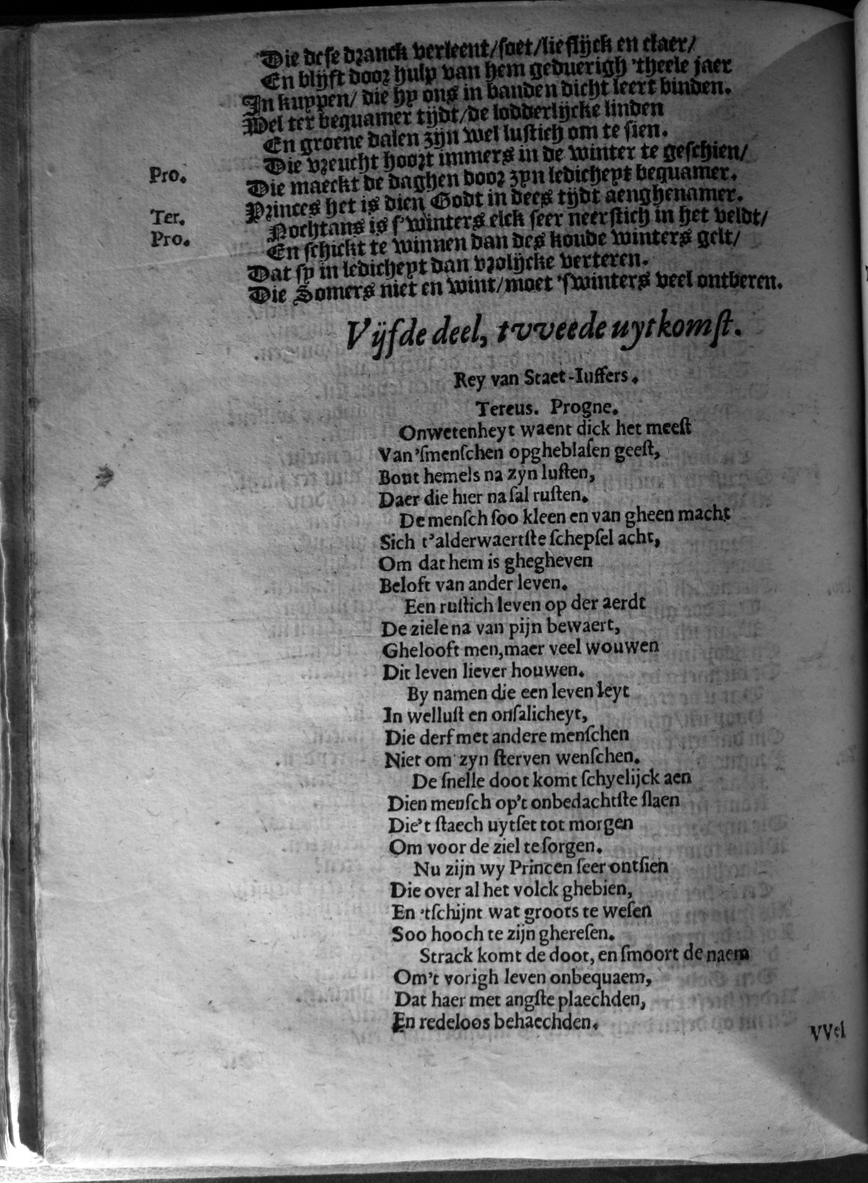 Die dese dranck verleent/soet/lieflijck en claer/
En blijft door hulp van hem geduerigh 'theele jaer
In kuppen/ die hy ons in banden dicht leert binden.
Wel ter bequamer tijdt/de lodderlijcke linden
En groene dalen zijn wel lustich om te sien.
Die vreucht hoort immers in de winter te geschien/
Pro. Die maeckt de daghen door zyn ledicheyt bequamer.
Princes het is dien Godt in dees tijdt aenghenamer.
Ter. Nochtans is s'winters elck seer neerstich in het veldt/
Pro. En schickt te winnen dan des koude winters gelt/
Dat sy in ledicheyt dan vrolijcke verteren.
Die Somers niet en wint/moet 'swinters veel ontberen.
Vijfde deel, tvveede uytkomst.
Rey van Staet-Iuffers.
Tereus. Progne.
Onwetenheyt waent dick het meest
Van'smenschen opgheblasen geest,
Bout hemels na zyn lusten,
Daer die hier na sal rusten.
De mensch soo kleen en van gheen macht
Sich t'alderwaertste schepsel acht,
Om dat hem is ghegheven
Beloft van ander leven.
Een rustich leven op der aerdt
De ziele na van pijn bewaert,
Ghelooft men,maer veel wouwen
Dit leven liever houwen.
By namen die een leven leyt
In wellust en onsalicheyt,
Die derf met andere menschen
Niet om zyn sterven wenschen.
De snelle doot komt schyelijck aen
Dien mensch op't onbedachtste slaen
Die't staech uytset tot morgen
Om voor de ziel te sorgen.
Nu zijn wy Princen seer ontsien
Die over al het volck ghebien,
En 'tschijnt wat groots te wesen
Soo hooch te zijn gheresen.
Strack komt de doot, en smoort de naem
Om't vorigh leven onbequaem,
Dat haer met angste plaechden,
En redeloos behaechden.
VVel